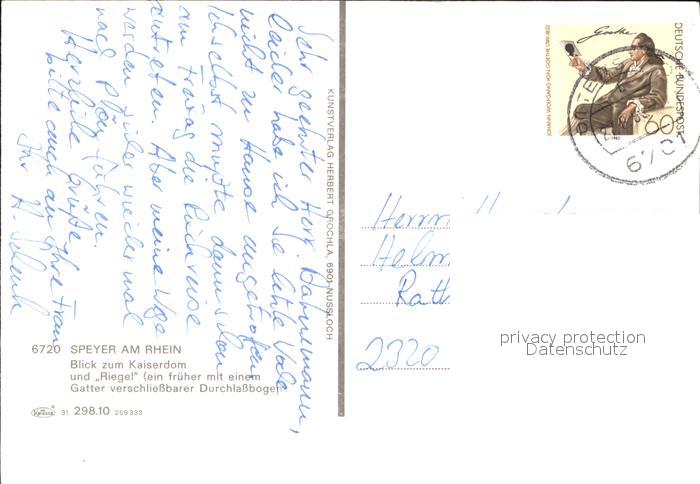 Sehr geehrter Herr Hahnemann,
leider habe ich Sie letzte Woche
nicht zu Hause angetroffen.
Ich selbst mußte dann schon
am Freitag die Rückreise
antreten. Aber meine Wege
werden sicher wieder mal
nach Plön führen.
Herzliche Grüße
bitte auch an Ihre Frau
Ihr H.
KUNSTVERLAG HERBERT GROCHLA, 6901 NUSSLOCH
6720 SPEYER AM RHEIN
Blick zum Kaiserdom
und „Riegel" (ein früher mit einem
Gatter verschließbarer Durchlaßbogen
Krüger 31. 298.10 269333
Goethe
JOHANN WOLFGANG VON GOETHE 1749-1832
DEUTSCHE BUNDESPOST
60
6701
Herrn
Helm
Rath
2320
privacy protection
Datenschutz